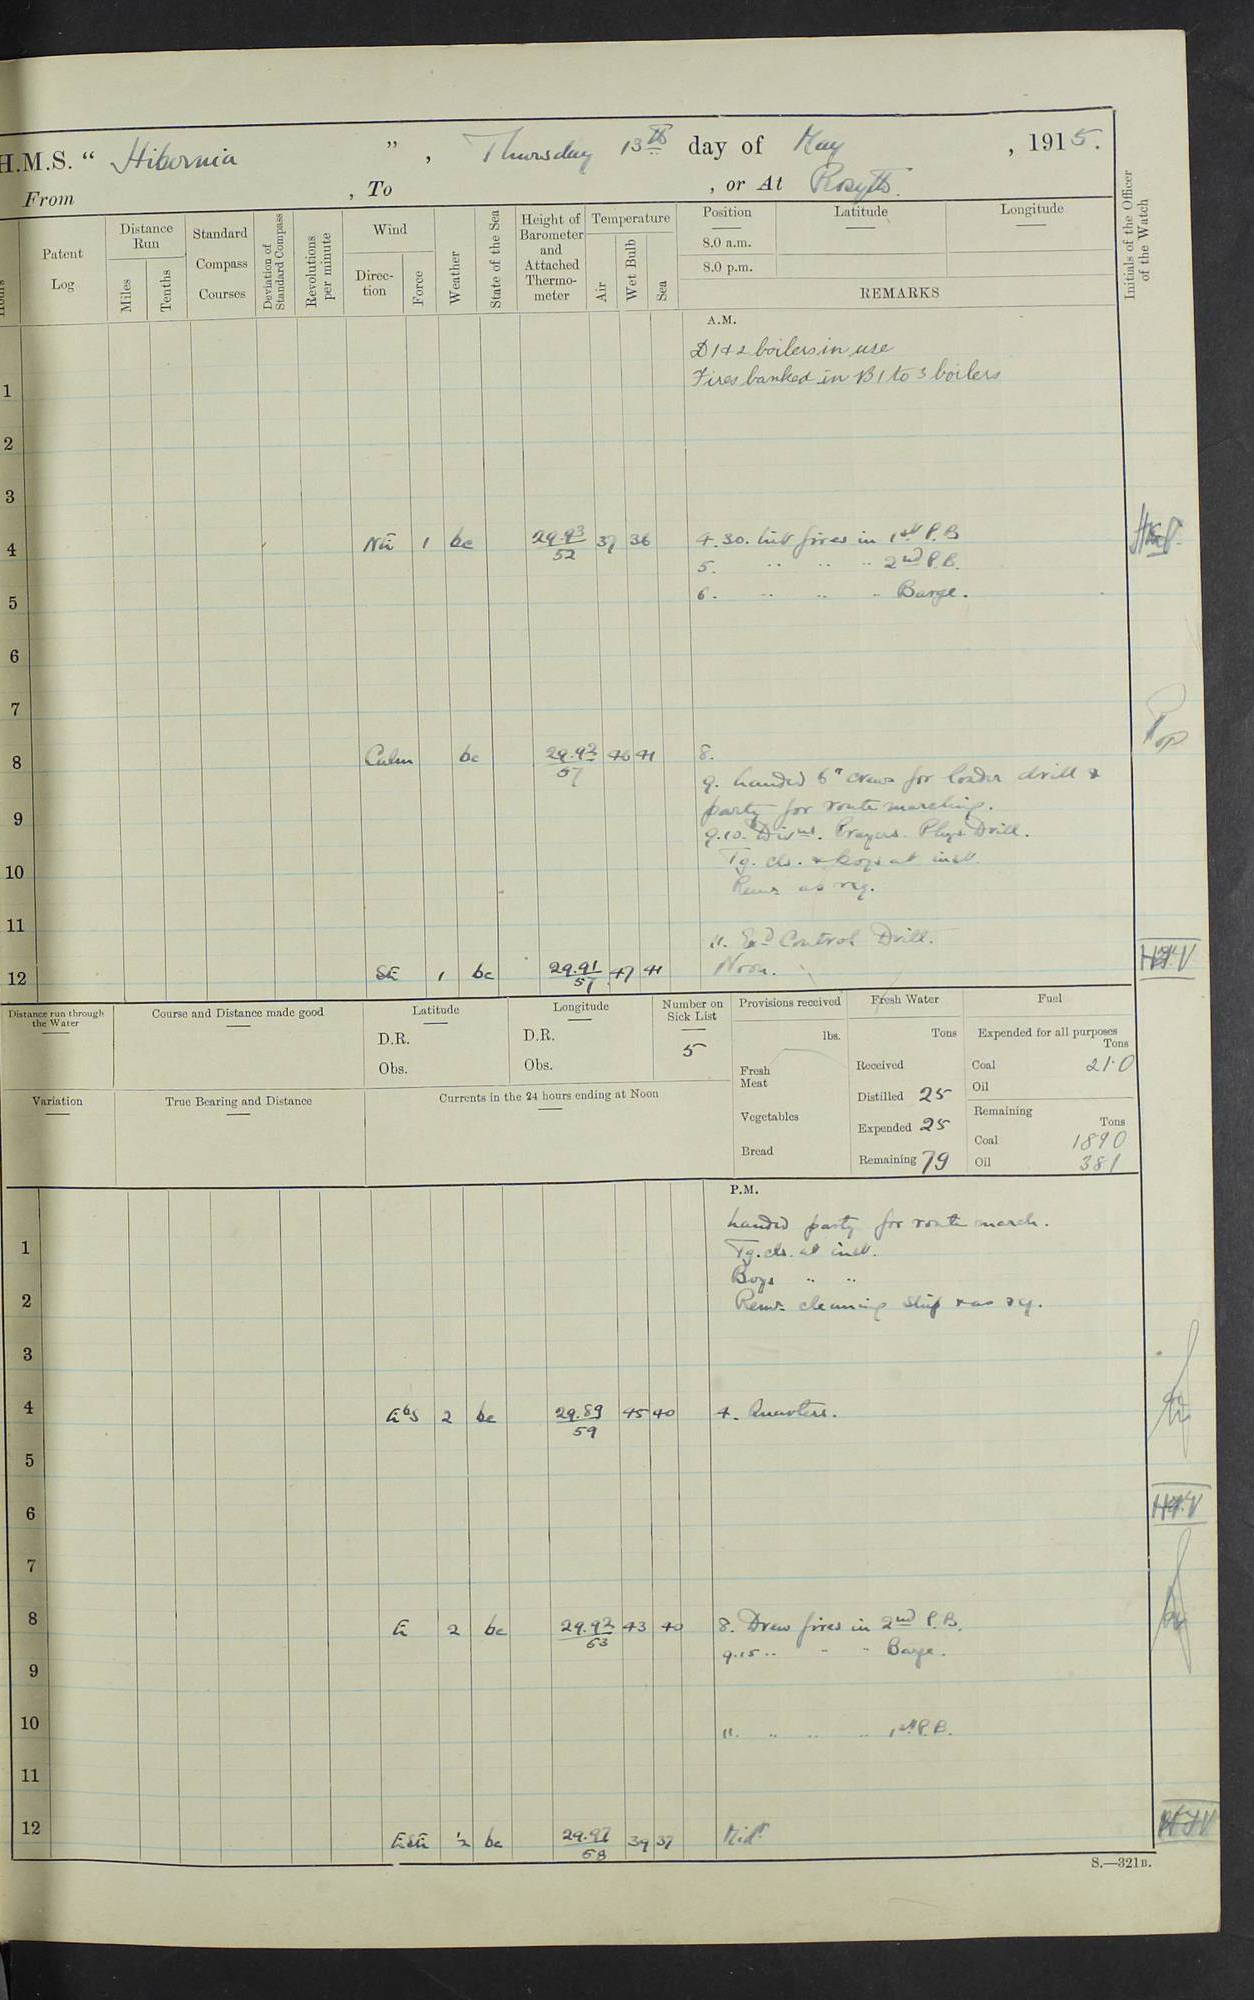 H.M.S. “ Hibernia ” , Thursday 13th day of May , 1915.
From , To , or At Rosyth.
Hours
Patent Log
Distance Run
Miles
Tenths
Standard Compass Courses
Deviation of Standard Compass
Revolutions per minute
Wind
Direction
Force
Weather
State of the Sea
Height of Barometer and Attached Thermometer
Temperature
Air
Wet Bulb
Sea
Position
8.0 a.m.
8.0 p.m.
Latitude
Longitude
REMARKS
Initials of the Officer of the Watch
A.M.
D 1 & 2 boilers in use
1 Fires banked in B 1 to 3 boilers
2
3
4 NE 1 bc 29.93 52 37 36 4.30. Lit fires in 1st P.B
5. .. .. .. 2nd P.B.
5 6. .. .. .. Barge.
6
7
8 Calm bc 29.92 57 46 41 8.
9. Landed 6" crews for loader drill &
9 party for route marching.
9.10. Divns. Prayers. Phys Drill.
10 Tg. cls. & boys at inst.
Remr as req.
11
11. Control Drill.
12 SE 1 bc 29.91 57 47 41 Noon.
Distance run through the Water
Course and Distance made good
Latitude
D.R.
Obs.
Longitude
D.R.
Obs.
Number on Sick List
5
Provisions received
lbs.
Fresh Meat
Vegetables
Bread
Fresh Water
Tons
Received
Distilled 25
Expended 25
Remaining 79
Fuel
Expended for all purposes
Tons
Coal 21.0
Oil
Remaining
Tons
Coal 1890
Oil 381
Variation
True Bearing and Distance
Currents in the 24 hours ending at Noon
P.M.
Landed party for route march.
1 Tg. cls. at inst.
Boys .. ..
2 Remr cleaning ship & as req.
3
4 EbS 2 bc 29.89 59 45 40 4. Quarters.
5
6
7
8 E 2 bc 29.92 63 43 40 8. Drew fires in 2nd P.B.
9 9.15 .. .. .. Barge.
10 11. .. .. .. 1st P.B.
11
12 ESE ½ bc 29.92 58 39 37 Midt
S.—321B.